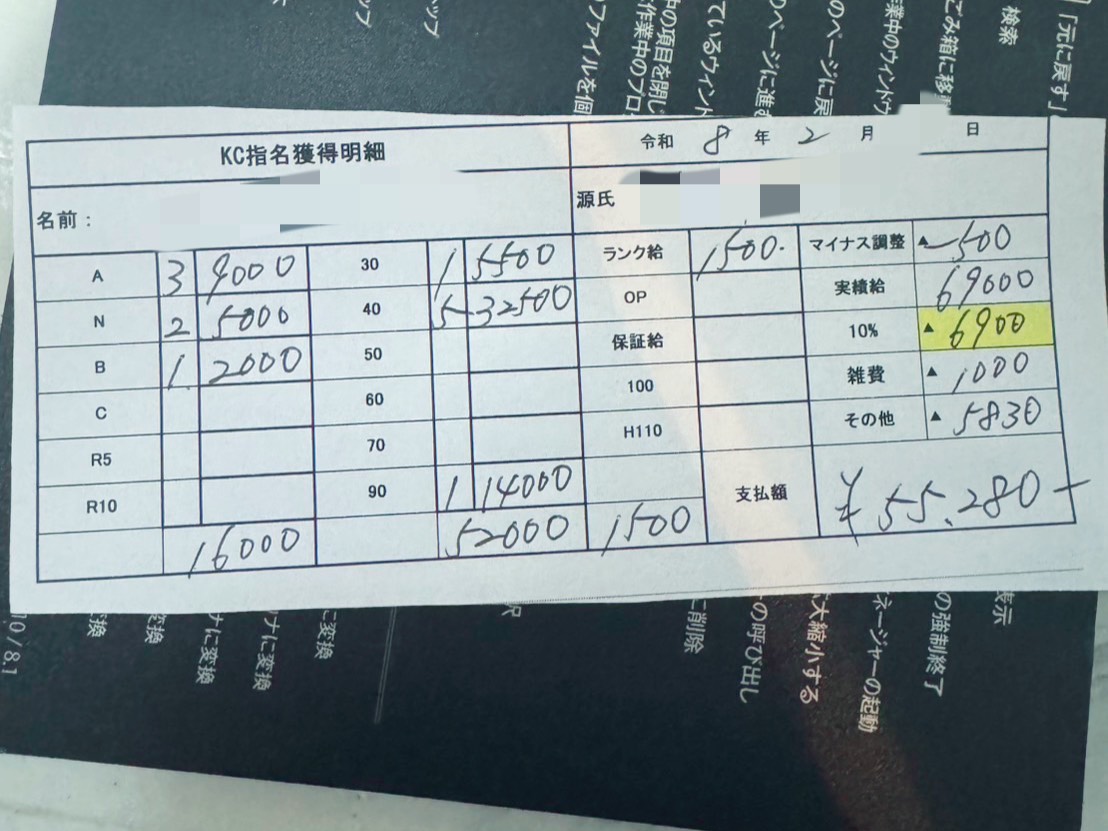 KC指名獲得明細
令和 8 年 2 月 日
名前：
源氏
A 3 9000 30 1 5500 ランク給 1500. マイナス調整 ▲ 500
N 2 5000 40 5 32500 OP 実績給 69000
B 1. 2000 50 保証給 10% ▲ 6900
C 60 100 雑費 ▲ 1000
R5 70 H110 その他 ▲ 5830
R10 90 1 14000 支払額 ¥ 55.280-
16000 52000 1500
「元に戻す」
検索
ごみ箱に移
業中のウィンドウ
のページに戻
のページに進
ているウィント
中の項目を閉じ
作業中のプロ
ファイルを個
ップ
ップ
表示
の強制終了
ネージャーの起動
大縮小する
の呼び出し
に削除
択
に変換
ナに変換
ナに変換
変換
変換
10/8.1